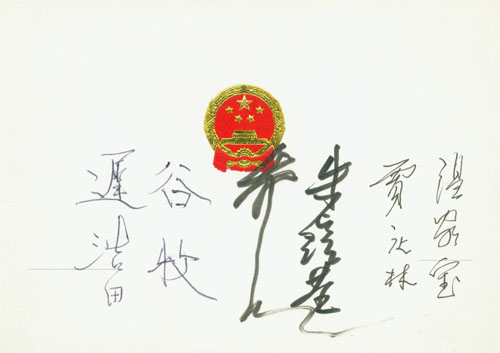 温家宝
贾庆林
朱镕基
谷牧
遲浩田